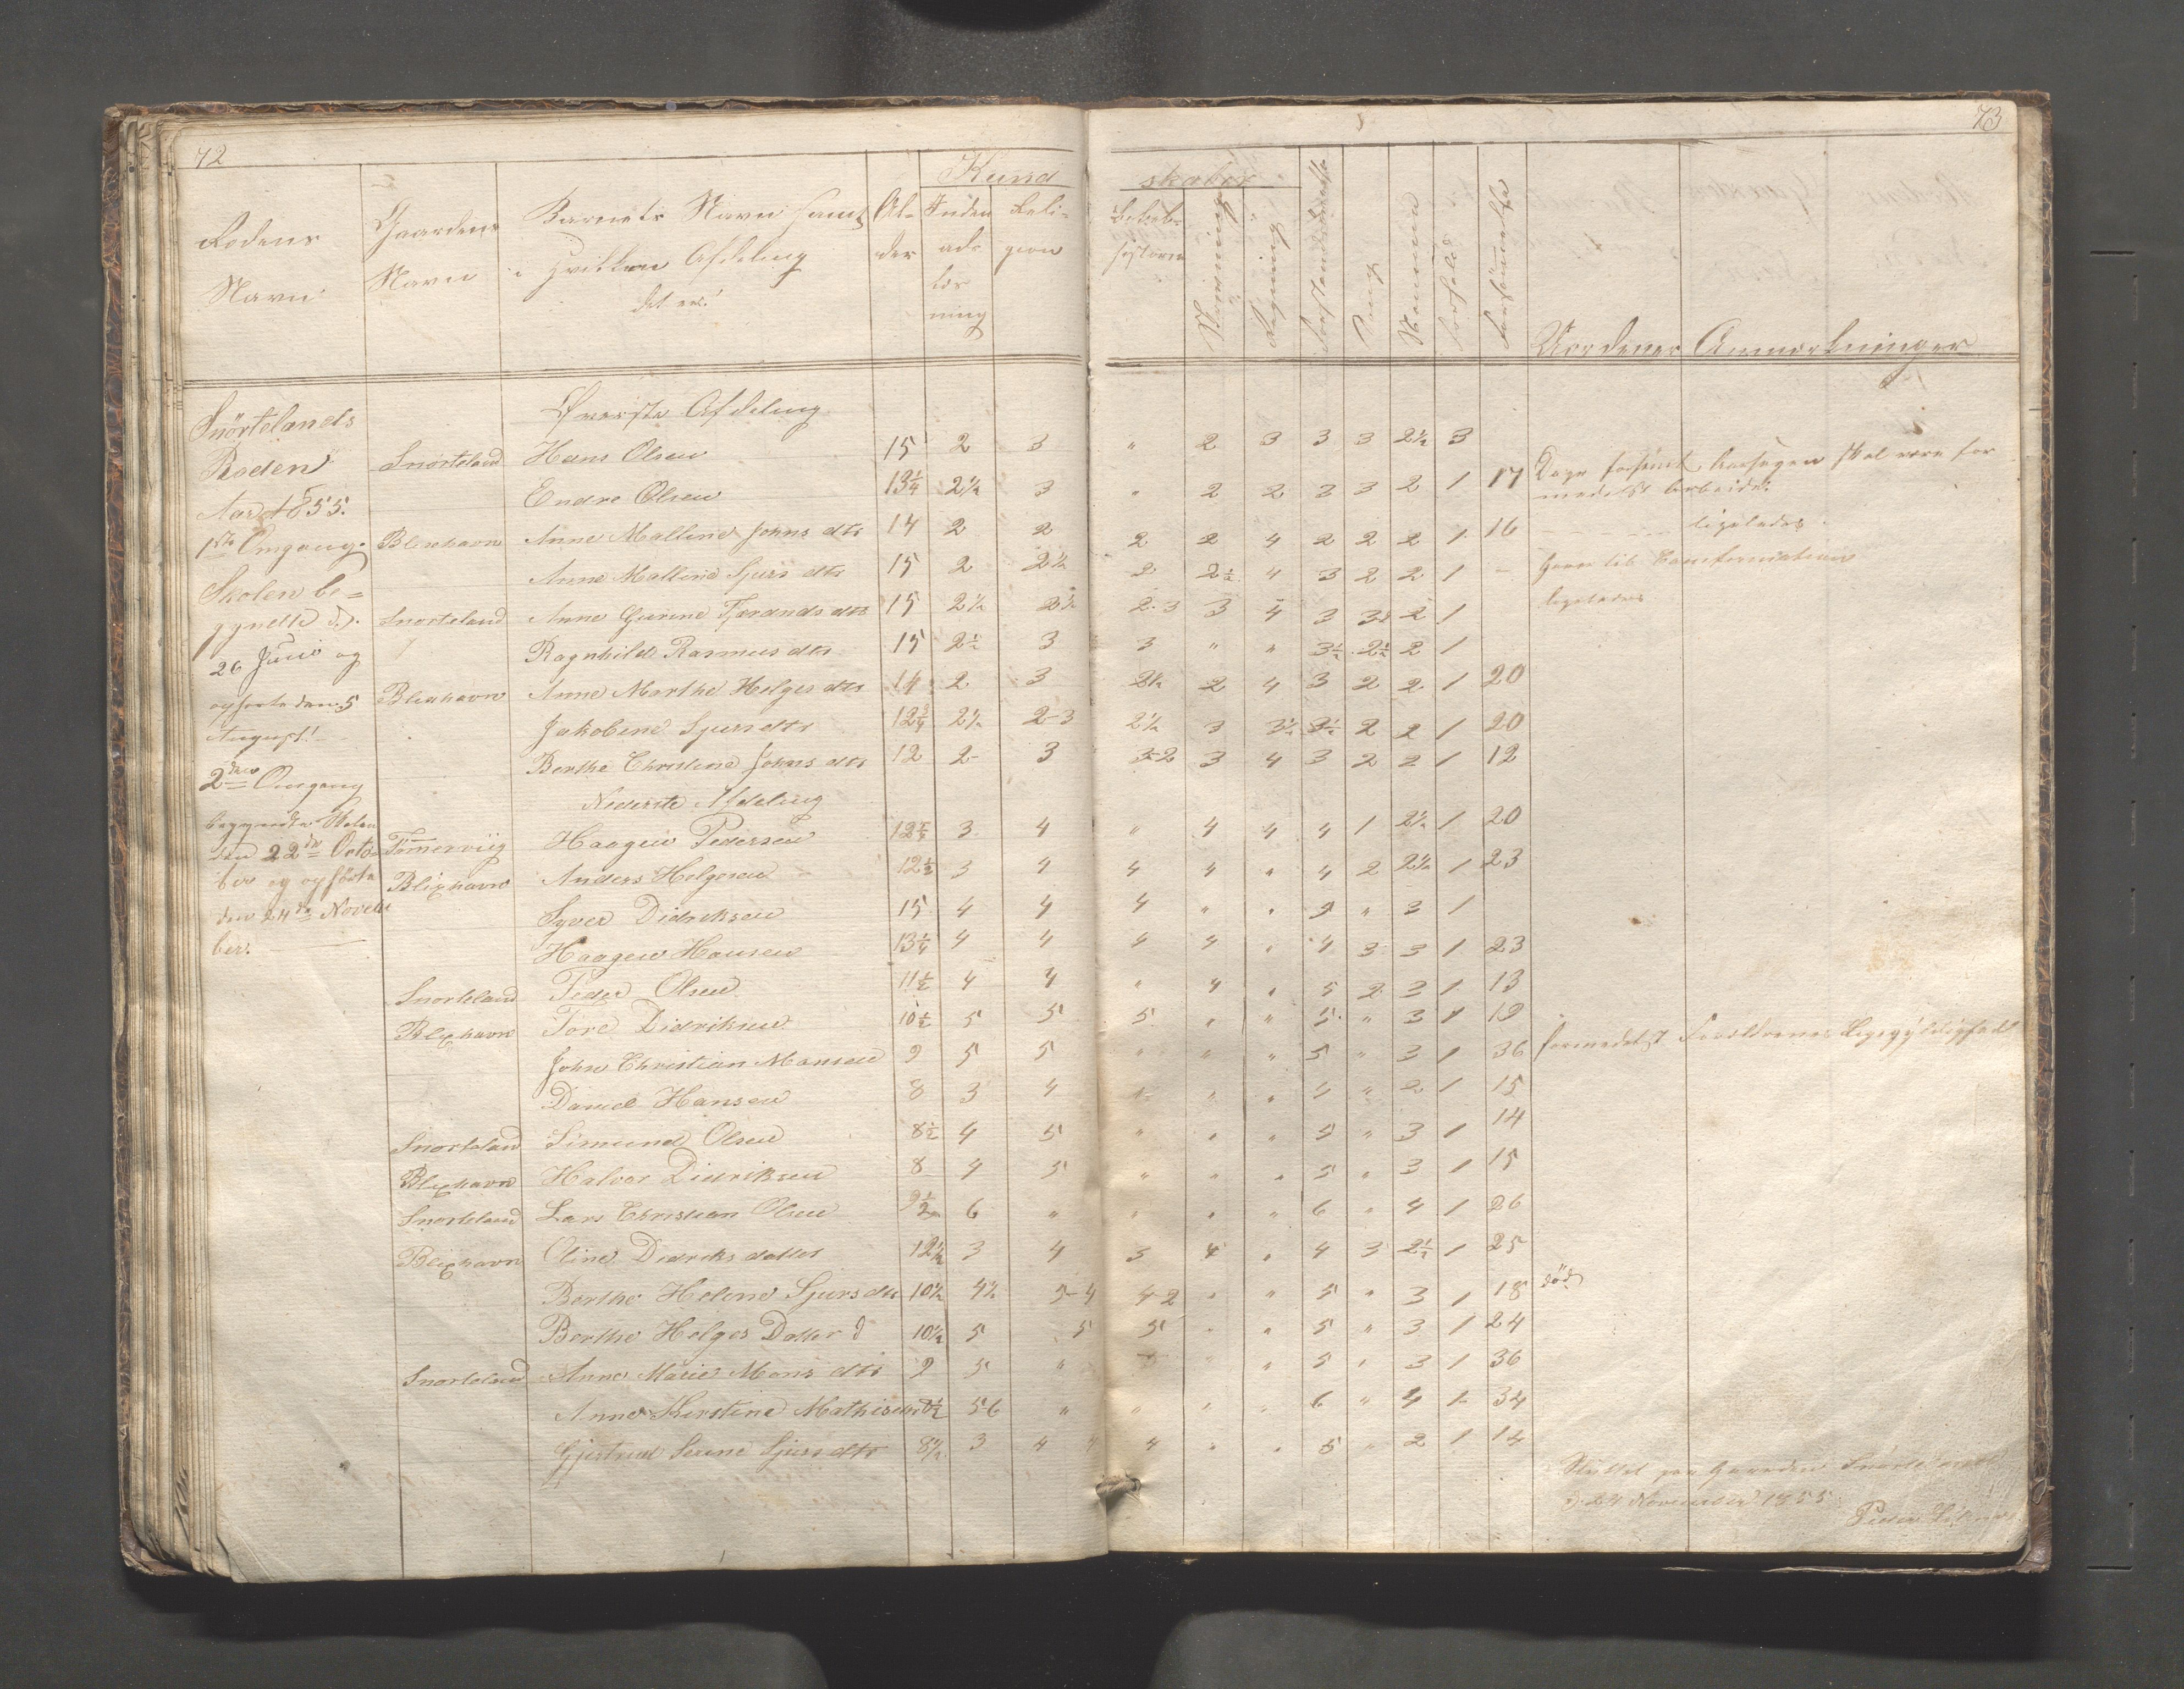 72
73
Kund
skaber
Rodens
Navn
Gaardens
Navn
Barnets Navn samt
i hvilken Afdeling
det er.
Al-
der
Inden
ads
læs
ning
Reli-
gion
Bibel-
historie
Skrivning
Regning
Sang
Nemme
Forhold
Forsömmelse
Lærerens Anmærkninger
Snörtelands
Roden
Aar 1855.
1ste Omgang.
Skolen be=
gyndte d.
26 Juni og
ophörte den 5
August.
2den Omgang
begyndte Skolen
den 22de Octo-
ber og ophörte
den 24de Novem
ber.
Överste Afdeling
Snörteland Hans Olsen 15 2 3 " 2 3 3 3 2½ 3
Endre Olsen 13¼ 2½ 3 " 2 2 3 3 2 1 17 Dage forsömt Aarsagen skal være for
medelst Arbeide.
Blixhavn Anne Malline Johns dtr 14 2 2 2 2 4 2 2 2 1 16 ligeledes
Anne Malline Sjurs dtr 15 2 2½ 2 2½ 4 3 2 2 1 - Gaaer til Confirmation
Snorteland Anne Gurine Tjerands dtr 15 2½ 2½ 2-3 3 4 3 3½ 2 1 ligeledes
Ragnhilde Rasmus dtr 15 2½ 3 3 " " 3½ 2½ 2 1
Blixhavn Anne Marthe Helges dtr 14 2 3 2½ 2 4 3 2 2 1 20
Jakobine Sjurs dtr 12¾ 2½ 2-3 2½ 3 3½ 3½ 2 2 1 20
Berthe Christine Johns dtr 12 2 3 3-2 3 4 3 2 2 1 12
Nederste Afdeling
Tömmerviig Haagen Pedersen 3 4 " 4 4 4 1 2½ 1 20
Blixhavn Anders Helgesen 12½ 3 4 4 4 " 4 2 2½ 1 23
Syver Didriksen 15 4 4 4 " " 5 " 3 1
Haagen Hansen 13¼ 4 4 4 4 " 4 3 3 1 23
Snorteland Peder Olsen 11½ 4 4 " 4 " 5 2 3 1 13
Blixhavn Tore Didriksen 10½ 5 5 5 " " 5 " 3 1 19
John Christian Monsen 9 5 5 " " " 5 " 3 1 36 formedelst Forældrenes Ligegyldighed
Daniel Hansen 8 3 4 " " 4 " 2 1 15
Snorteland Simund Olsen 8½ 4 5 " " " 5 " 3 1 14
Blixhavn Halvor Didriksen 8 4 5 " " " 5 " 3 1 15
Snorteland Lars Christian Olsen 9½ 6 " " " " 6 " 4 1 26
Blixhavn Oline Didriks datter 12½ 3 4 3 4 " 4 3 2½ 1 25
Berthe Helene Sjurs dtr 10½ 4½ 5-4 4-2 " " 5 " 3 1 18 död
Berthe Helges Datter d 10½ 5 5 5 " " 5 " 3 1 24
Snorteland Anne Marie Mons dtr 9 5 " 5 " " 5 " 3 1 36
Anne Kirstine Mathisen 5-6 " " " " 6 " 4 1 34
Gjertrud Serine Sjurs dtr 8½ 3 4 4 " " 5 " 2 1 14
Sluttet paa Gaarden Snörteland
d. 24 November 1855.
Peder